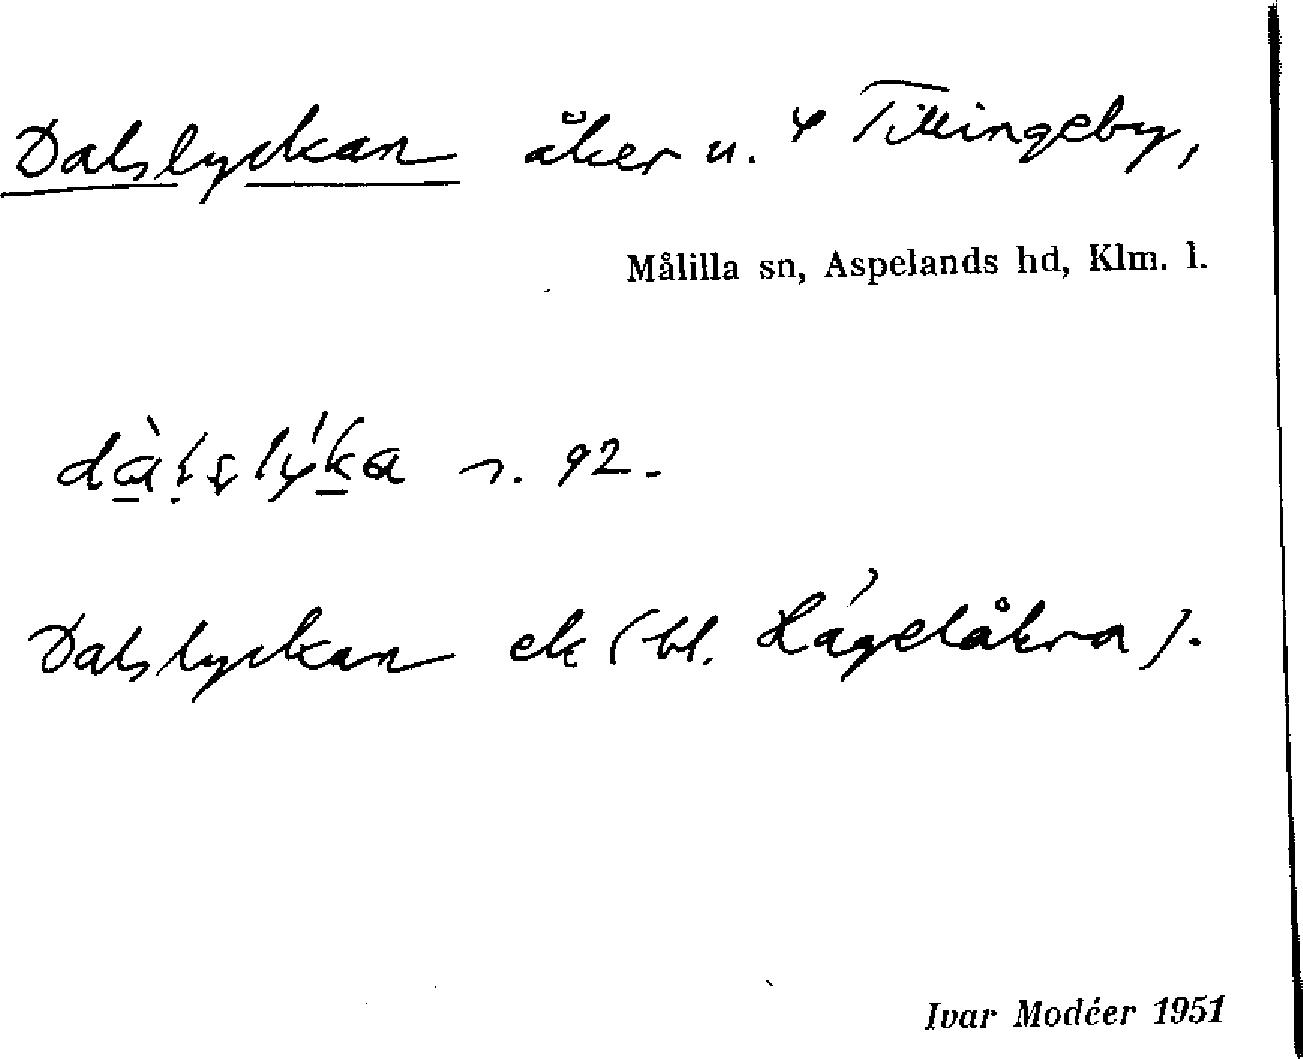 Dalslyckan åker u. 4 Tillingeby,
Målilla sn, Aspelands hd, Klm. l.
dàlslýka n. 92.
Dalslyckan ek (bl. Hågelåkra).
Ivar Modéer 1951